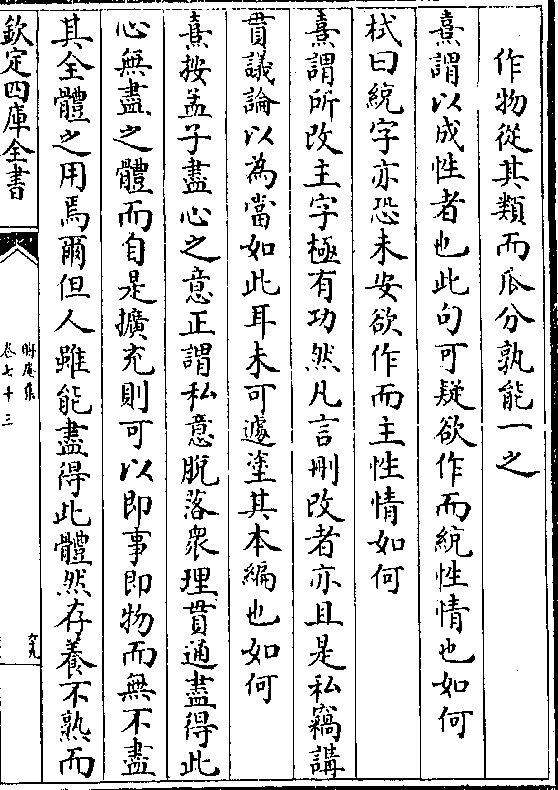 作物從其類而瓜分孰能一之
熹謂以成性者也此句可疑欲作而統性情也如何
栻曰統字亦恐未安欲作而主性情如何
熹謂所改主字極有功然凡言刪改者亦且是私竊講
貫議論以為當如此耳未可遽塗其本編也如何
熹按孟子盡心之意正謂私意脫落衆理貫通盡得此
心無盡之體而自是擴充則可以即事即物而無不盡
其全體之用焉爾但人雖能盡得此體然存養不熟而
欽定四庫全書
晦庵集
卷七十三